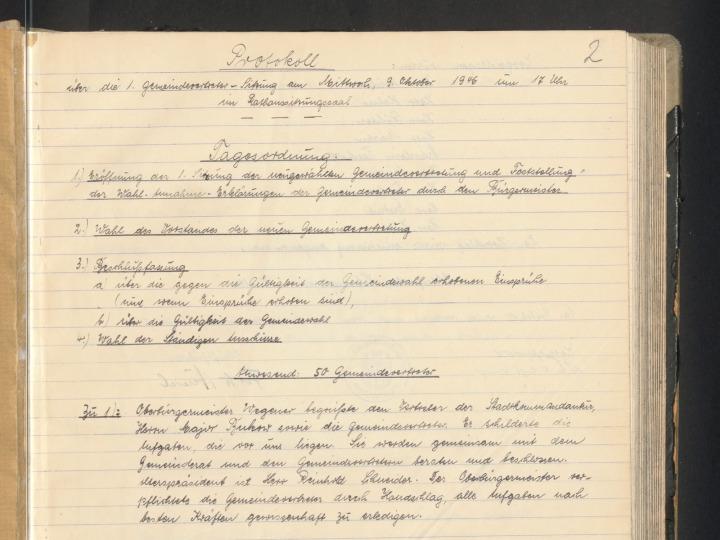 2
Protokoll
über die 1. Gemeindevertreter-Sitzung am Mittwoch, 9. Oktober 1946 um 17 Uhr
im Rathaussitzungssaal
Tagesordnung:
1.) Eröffnung der 1. Sitzung der neugewählten Gemeindevertretung und Feststellung
der Wahl-Annahme-Erklärungen der Gemeindevertreter durch den Bürgermeister
2.) Wahl des Vorstandes der neuen Gemeindevertretung
3.) Beschlußfassung
a über die gegen die Gültigkeit der Gemeindewahl erhobenen Einsprüche
(nur wenn Einsprüche erhoben sind),
b) über die Gültigkeit der Gemeindewahl
4.) Wahl der Ständigen Ausschüsse
Anwesend: 50 Gemeindevertreter
Zu 1): Oberbürgermeister Wegener begrüßte den Vertreter der Stadtkommandantur,
Herrn Major sowie die Gemeindevertreter. Er schilderte die
Aufgaben, die vor uns liegen. Sie werden gemeinsam mit dem
Gemeinderat und den Gemeindevertretern beraten und beschlossen.
Alterspräsident ist Herr Reinhold Schneider. Der Oberbürgermeister ver-
pflichtete die Gemeindevertreter durch Handschlag, alle Aufgaben nach
besten Kräften gewissenhaft zu erledigen.